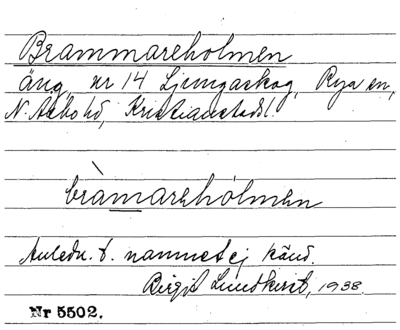 Brammareholmen
äng, nr 14 Ljungaskog, Rya sn,
N. Åsbo hd, Kristianstads l.
bràmarehòlmen
Anledn. t. namnet ej känd.
Birgit Lundkvist, 1938.
Nr 5502.